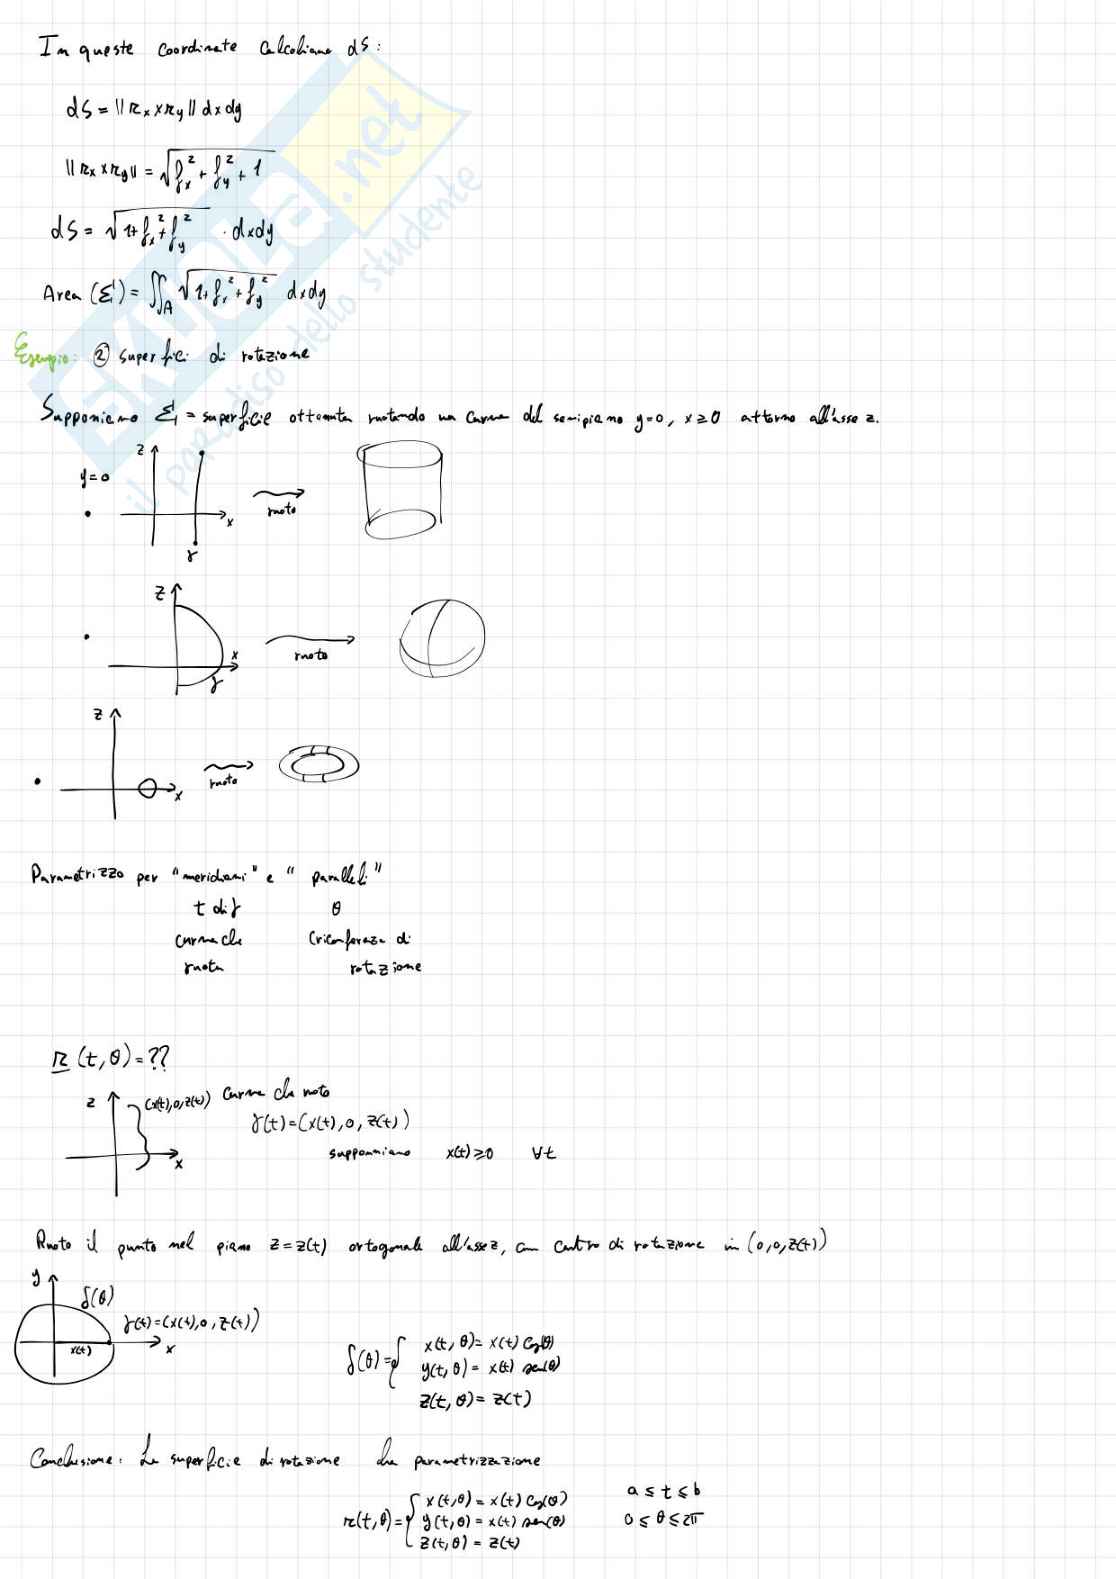 In queste coordinate calcoliamo dS:
dS = || r_x × r_y || dxdy
|| r_x × r_y || = √(f_x² + f_y² + 1)
dS = √(1 + f_x² + f_y²) · dxdy
Area (Σ) = ∬_A √(1 + f_x² + f_y²) dxdy
Esempio: ② superfici di rotazione
Supponiamo Σ = superficie ottenuta ruotando una curva del semipiano y=0, x≥0 attorno all'asse z.
z
y=0
• x ruoto
γ
z
• x ruoto
γ
z
• x ruoto
Parametrizzo per "meridiani" e "paralleli"
t di γ θ
curva che circonferenza di
ruota rotazione
r(t,θ)=??
z (x(t),0,z(t)) curva che ruoto
γ(t)=(x(t),0,z(t))
x supponiamo x(t)≥0 ∀t
Ruoto il punto nel piano z=z(t) ortogonale all'asse z, con centro di rotazione in (0,0,z(t))
y
δ(θ)
γ(t)=(x(t),0,z(t))
x(t) x
δ(θ)={ x(t,θ)= x(t) cos(θ)
y(t,θ)= x(t) sen(θ)
z(t,θ)= z(t)
Conclusione: La superficie di rotazione ha parametrizzazione
r(t,θ)={ x(t,θ)= x(t) cos(θ) a≤t≤b
y(t,θ)= x(t) sen(θ) 0≤θ≤2π
z(t,θ)= z(t)
SKUOLA.net
il paradiso dello studente